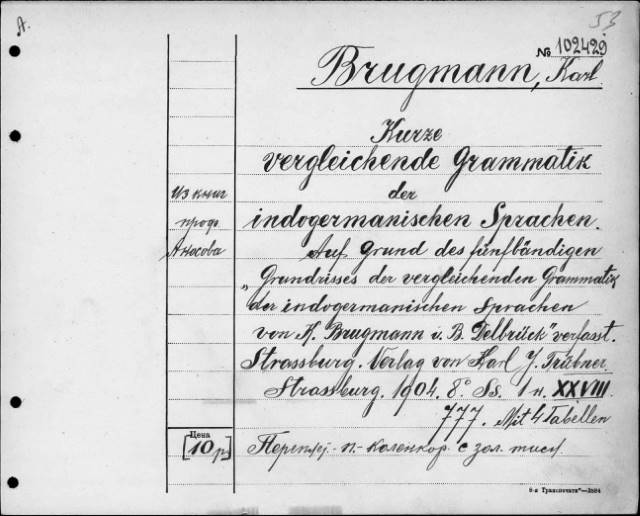 А.
53
№ 102429
Brugmann, Karl
Kurze
vergleichende Grammatik
der
indogermanischen Sprachen.
Auf Grund des fünfbändigen
„Grundrisses der vergleichenden Grammatik
der indogermanischen Sprachen
von K. Brugmann u. B. Delbrück" verfasst.
Strassburg. Verlag von Karl J. Trübner
Strassburg. 1904. 8° Ss. 1 н. XXVIII.
777. Mit 4 Tabellen
Из книг
проф.
Аносова
Цена
[10 р]
п.- коленкор. с зол. тисн.
6-я Транспечати"—3884